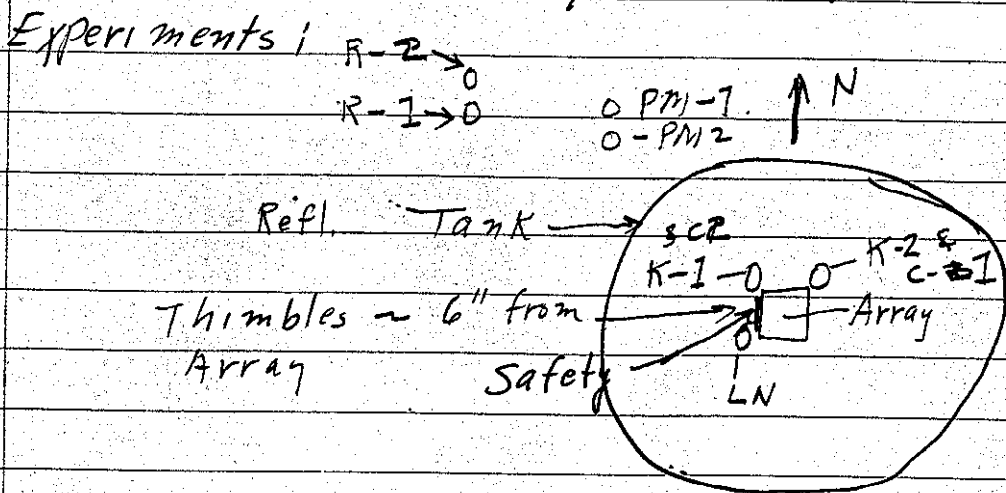 Experiments;
R-2
R-1
PM-1.
PM2
N
Refl. Tank
& C2
K-1
K-2 &
C-1
Thimbles ~ 6" from
Array
Array
Safety
LN